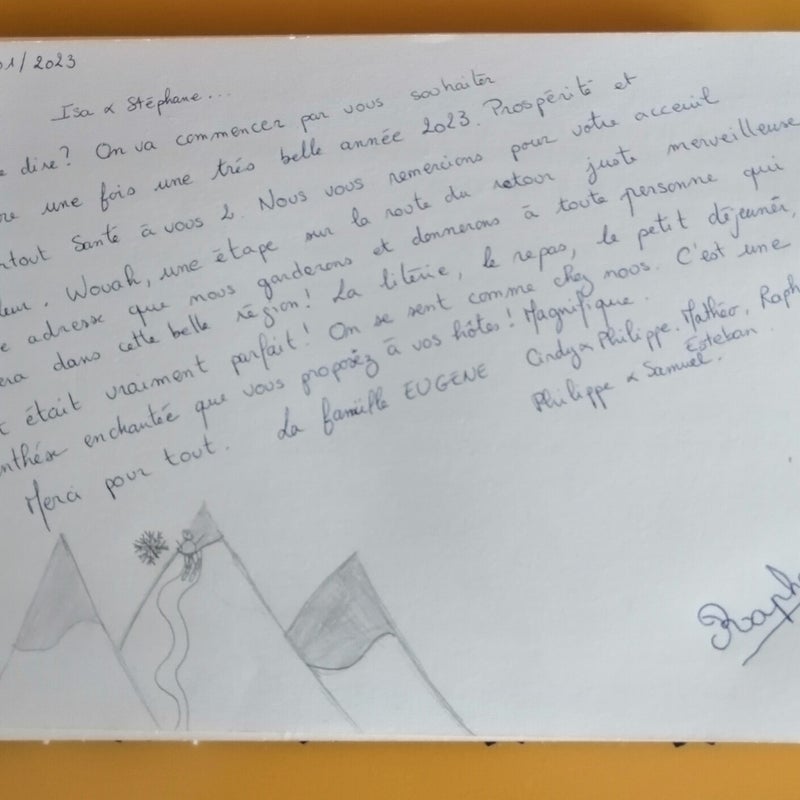 01/2023
Isa & Stéphane...
dire? On va commencer par vous souhaiter
une fois une très belle année 2023. Prospérité et
rtout Santé à vous 2. Nous vous remercions pour votre acceuil
leur. Wouah, une étape sur la route du retour juste merveilleuse
adresse que nous garderons et donnerons à toute personne qui
era dans cette belle région! La litérie, le repas, le petit déjeunér,
t était vraiment parfait! On se sent comme chez nous. C'est une
nthése enchantée que vous proposéz à vos hôtes! Magnifique.
Merci pour tout. La famille EUGENE Cindy & Philippe. Mathéo, Raph
Esteban.
Philippe & Samuel.
Raph